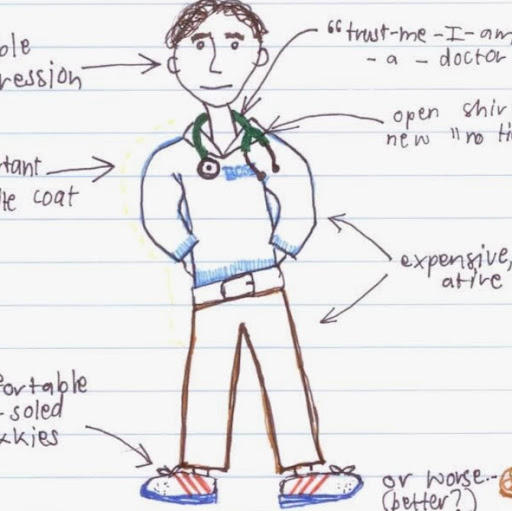 "trust-me-I-am
-a-doctor
open shir
new "no ti
ression
coat
expensive,
ative
fortable
-soled
kkies
or worse...
(better?)